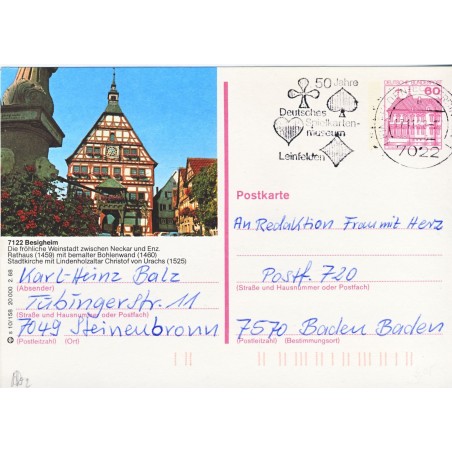 50 Jahre
Deutsches
Spielkarten-
museum
Leinfelden
DEUTSCHE BUNDESPOST
60
7022
7122 Besigheim
Die fröhliche Weinstadt zwischen Neckar und Enz.
Rathaus (1459) mit bemalter Bohlenwand (1460)
Stadtkirche mit Lindenholzaltar Christof von Urachs (1525)
Karl-Heinz Balz
(Absender)
Tübingerstr. 11
(Straße und Hausnummer oder Postfach)
7049 Steinenbronn
(Postleitzahl) (Ort)
Postkarte
An Redaktion Frau mit Herz
Postf. 720
(Straße und Hausnummer oder Postfach)
7570 Baden Baden
(Postleitzahl) (Bestimmungsort)
s 10/158 20 000 2 88